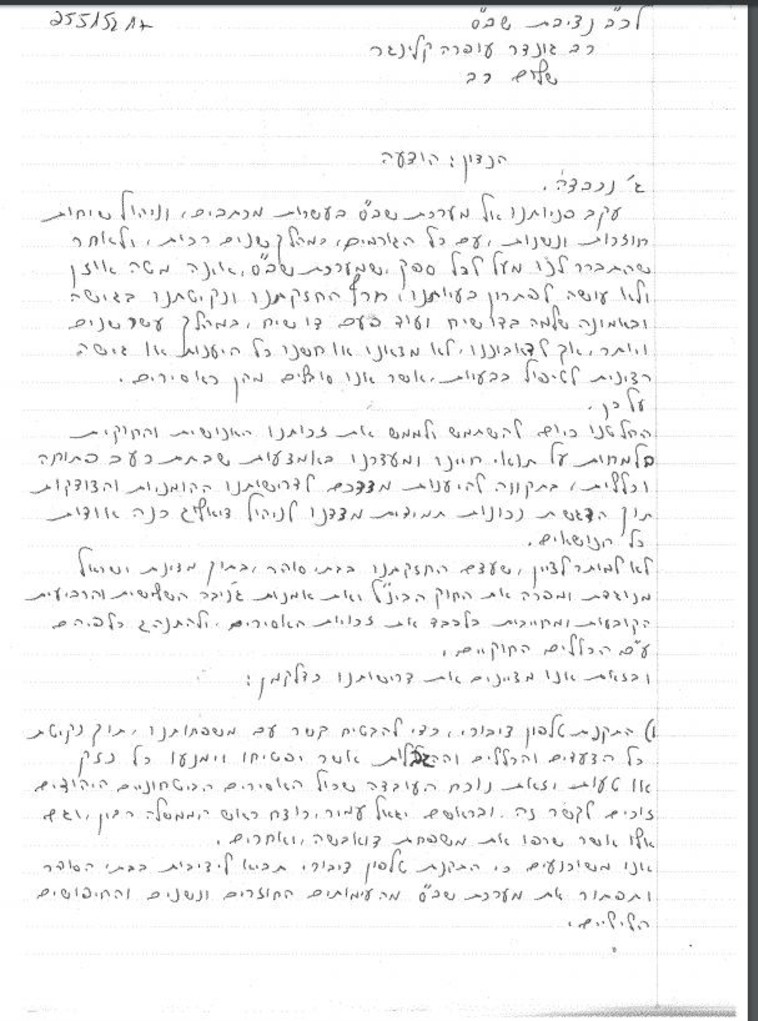 לכב' נציבת שב"ס
רב גונדר עופרה קלינגר
שלום רב
הנדון: הודעה
ג' נכבדה,
עקב פניותנו אל מערכת שב"ס בעשרות מכתבים, וניהול שיחות
חוזרות ונשנות, עם כל הגורמים, במהלך שנים רבות, ולאחר
שהתברר לנו מעל לכל ספק, שמערכת שב"ס, אינה מטה אוזן
ולא עושה לפתרון בעיותנו, חרף החזקתנו ונקיטתנו בגישה
ובאמונה שלמה בדו שיח ועוד פעם דו שיח, במהלך עשר שנים
ויותר, אך לדאבוננו, לא מצאנו או חשנו כל היענות או גישה
רצינית לטיפול בבעיות, אשר אנו סובלים מהן כאסירים.
על כן,
החלטנו כיום להשתמש ולממש את זכותנו האנושית והחוקית
למחות על תנאי חיינו ומעצרנו באמצעות שביתת רעב פתוחה
וכללית, בתקווה להיענות מצדכם לדרישותנו ההומניות והצודקות
תוך הדגשת נכונות תמידית מצדנו לניהול דיאלוג כנה אודות
כל הנושאים.
לא למותר לציין, שעצם החזקתנו בבתי סוהר, בתוך מדינת ישראל
מנוגדת ומפרה את החוק הבינ"ל ואת אמנות ג'נבה השלישית והרביעית
הקובעות ומחייבות לכבד את זכויות האסירים, ולהתנהג כלפיהם
ע"פ הכללים החוקיים.
ובזאת אנו מציינים את דרישותנו כדלקמן:
1) התקנת טלפון ציבורי, כדי להבטיח קשר עם משפחותנו, תוך נקיטת
כל הצעדים והכללים וההגבלות אשר יבטיחו וימנעו כל נזק
או טעות, וזאת נוכח העובדה שכול האסירים הביטחוניים היהודים
זוכים לקשר זה, ובראשם יגאל עמיר, רוצח ראש הממשלה רבין, וגם
אלו אשר שרפו את משפחת דוואבשה, ואחרים.
אנו משוכנעים כי התקנת טלפון ציבורי, תביא ליציבות בבתי הסוהר
ותפטור את מערכת שב"ס מהעימותים החוזרים ונשנים והחיפושים
הליליים.